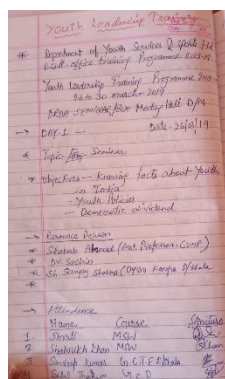 Youth Leadership Training
* Department of Youth Services & Sports
office training Programme
Youth Leadership Training Programme
26 to 30 march - 2019
DRDA SEMINAR Meeting Hall D/Sala
→ DAY 1 — Date - 26/3/19
* Topic Seminar
* Objectives -- Knowing facts about Youth
in India
- Youth Policies
-- Democratic dividend
→ Resource Person
* Shabab Ahmad (Asst. Professor. CUHP)
* Dr. Sachin
* Sh. Sanjay Sharma (DYSSO Kangra D/shala
→ Attendence
Name Course Signature
1. Shruti MSW
2. Shahrukh Khan MSW
3. Sandeep Kumar